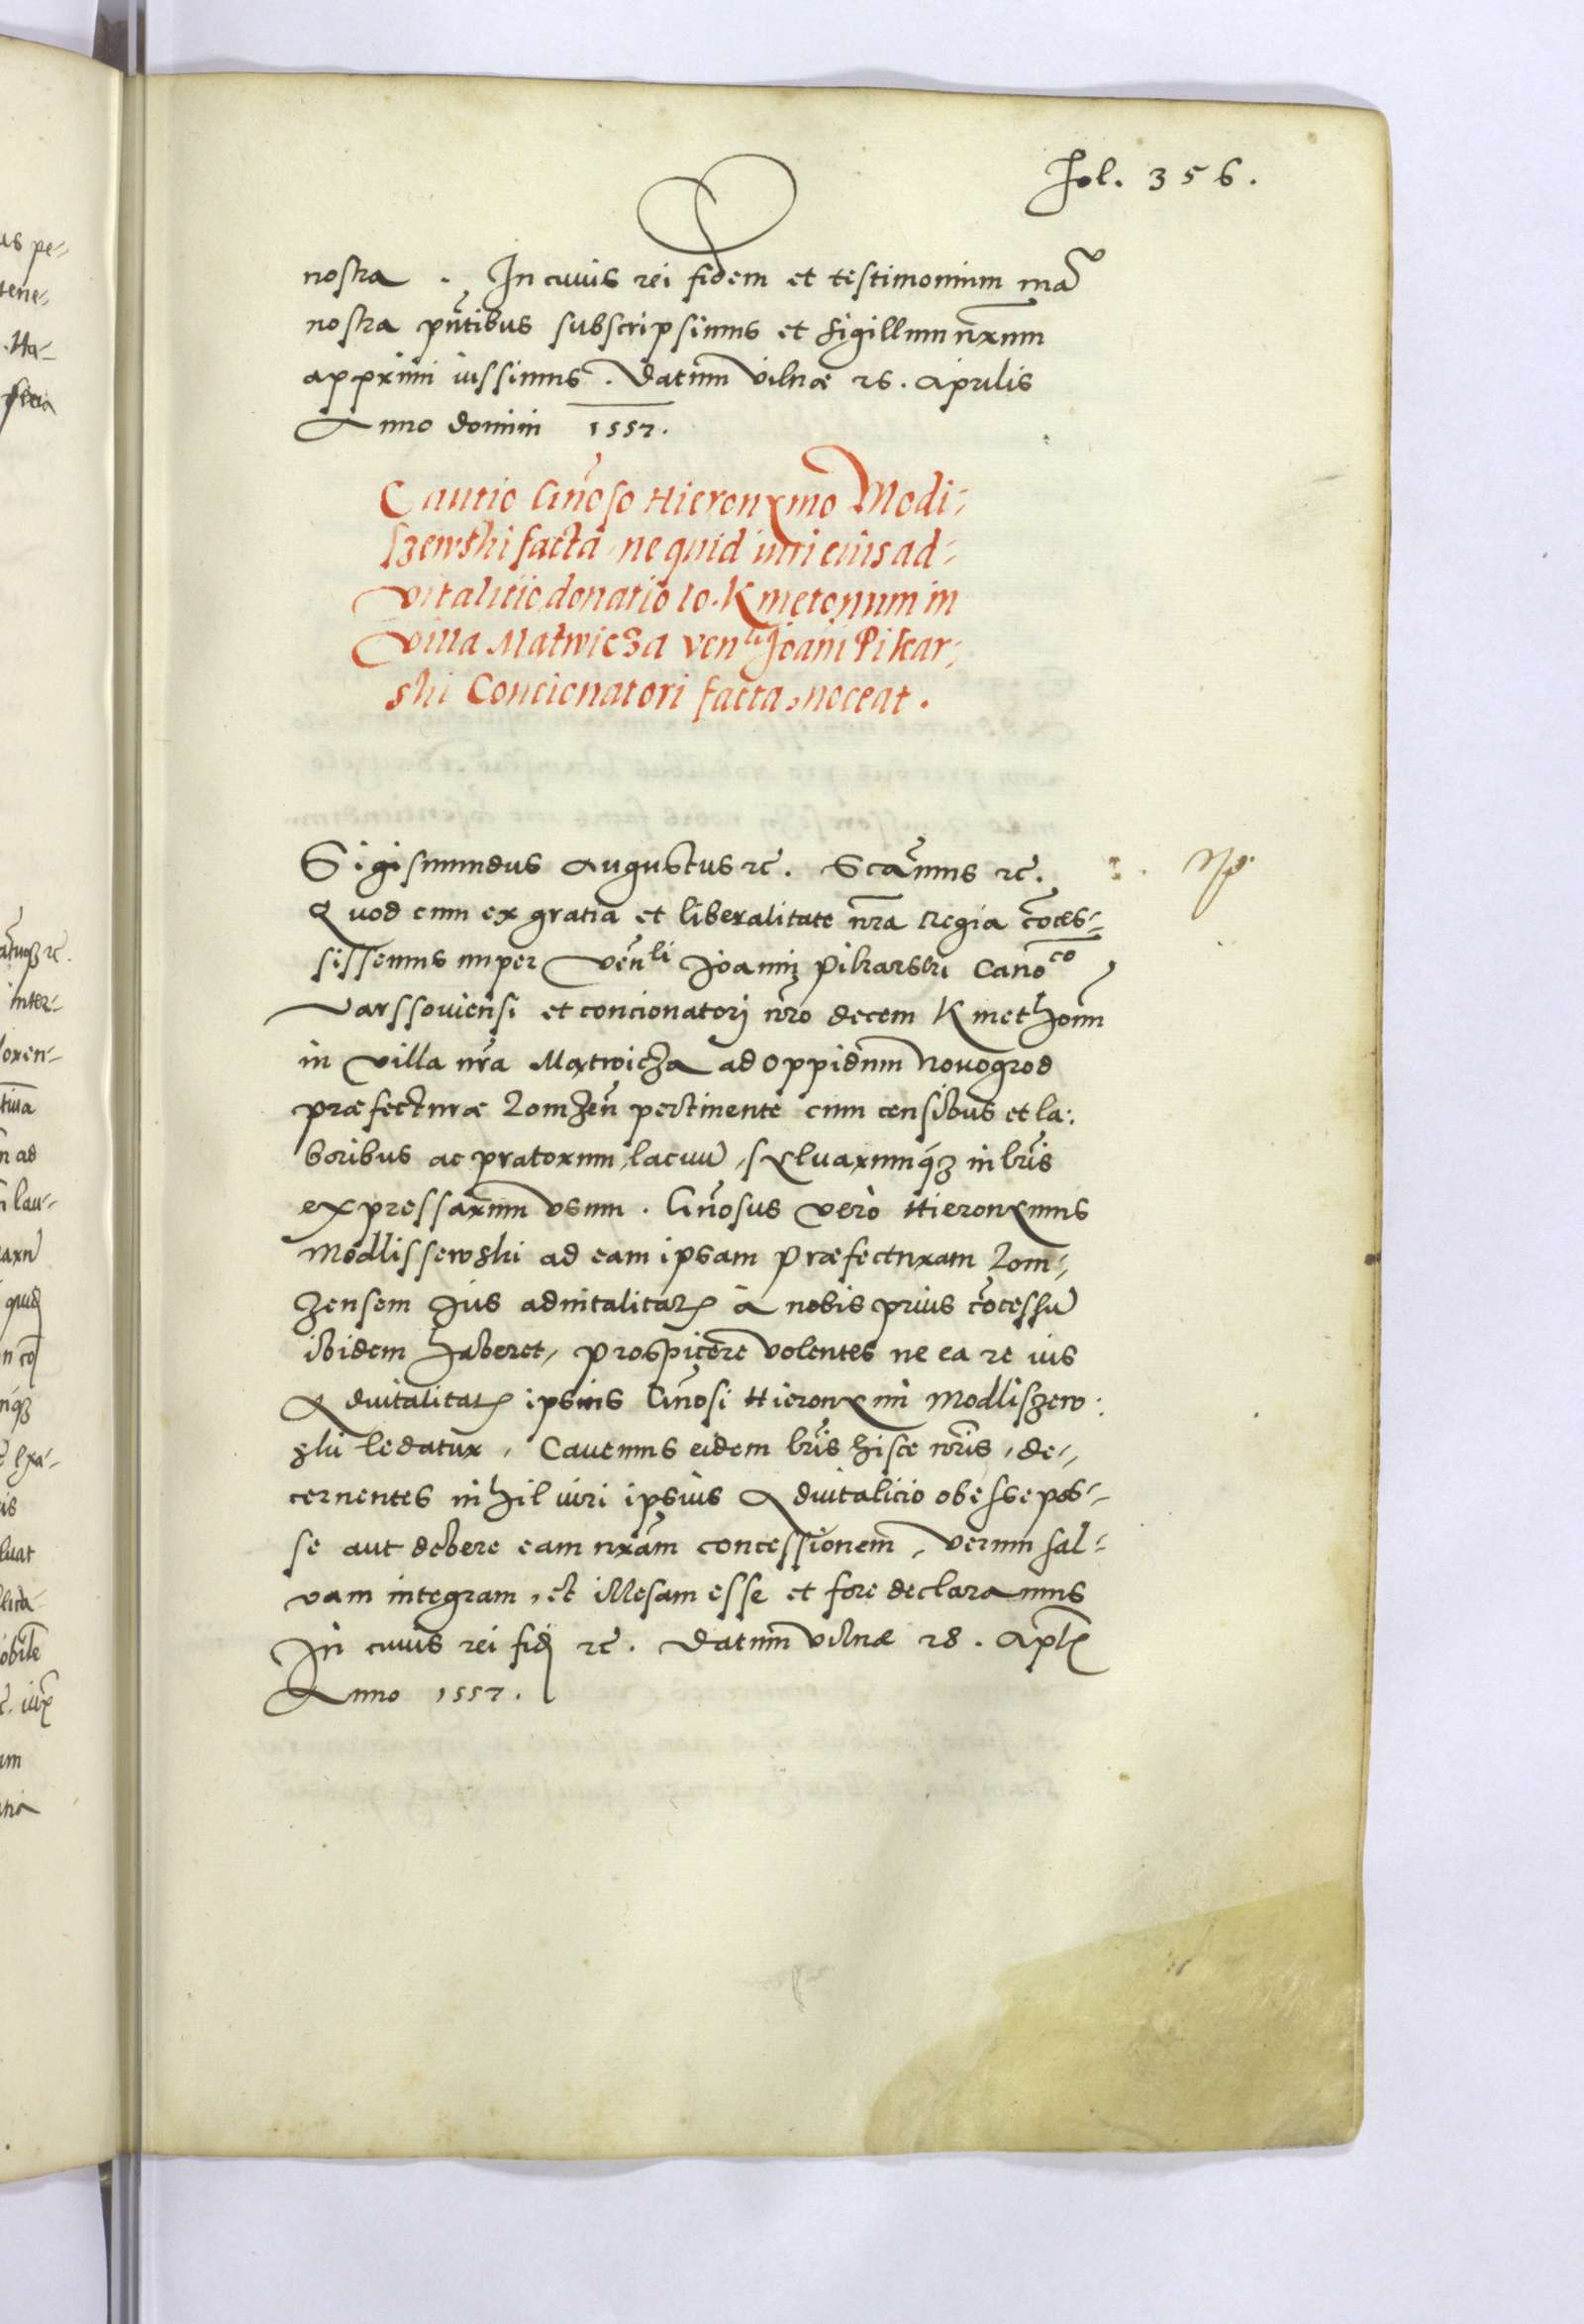 Fol. 356.
nostra. In cuius rei fidem et testimonium mãˢ
nostra pñtibus subscripsimus et sigillum nr̃um
apprimi iussimus. Datum Vilnæ 26. Aprilis
Anno domini 1557.
Cautio Gñoso Hieronymo Modli-
szewski facta, ne quid iuri eius ad-
vitalitio donatio 10. Kmetonum in
Villa Matwicza Venˡⁱ Joañi Pikar-
ski Concionatori facta, noceat.
Sigismundus Augustus ꝛc̃. Scãmus ꝛc̃.
Quod cum ex gratia et liberalitate nr̃a Regia cõces-
sissemus nuper Veñˡⁱ Joannj Pikarski Canoᶜᵒ,
Varssouiensi et concionatorj nr̃o decem Kmethonũ
in Villa nr̃a Matwicza ad oppidum Nouogrod
præfecturæ Lomzeñ pertinente cum censibus et la:
boribus ac pratorum, lacuũ, syluarumq́ꝫ in lr̃is
expressarum vsum. Gñosus vero Hieronymus
Modlissewski ad eam ipsam præfecturam Lom-
zensem Jus aduitalitatꝭ à nobis prius cõcessũ
ibidem haberet, prospicere volentes ne ea re ius
Aduitalitatꝭ ipsius Gñosi Hieronymi Modliszew:
ski ledatur, Cauemus eidem lr̃is hisce nr̃is, de-
cernentes nihil iuri ipsius Aduitalicio obesse pos-
se aut debere eam nr̃am concessionem, verum sal-
vam integram, et illesam esse et fore declaramus
In cuius rei fidꝭ ꝛc̃. Datum Vilnæ 28. Aplꝭ
Anno 1557.